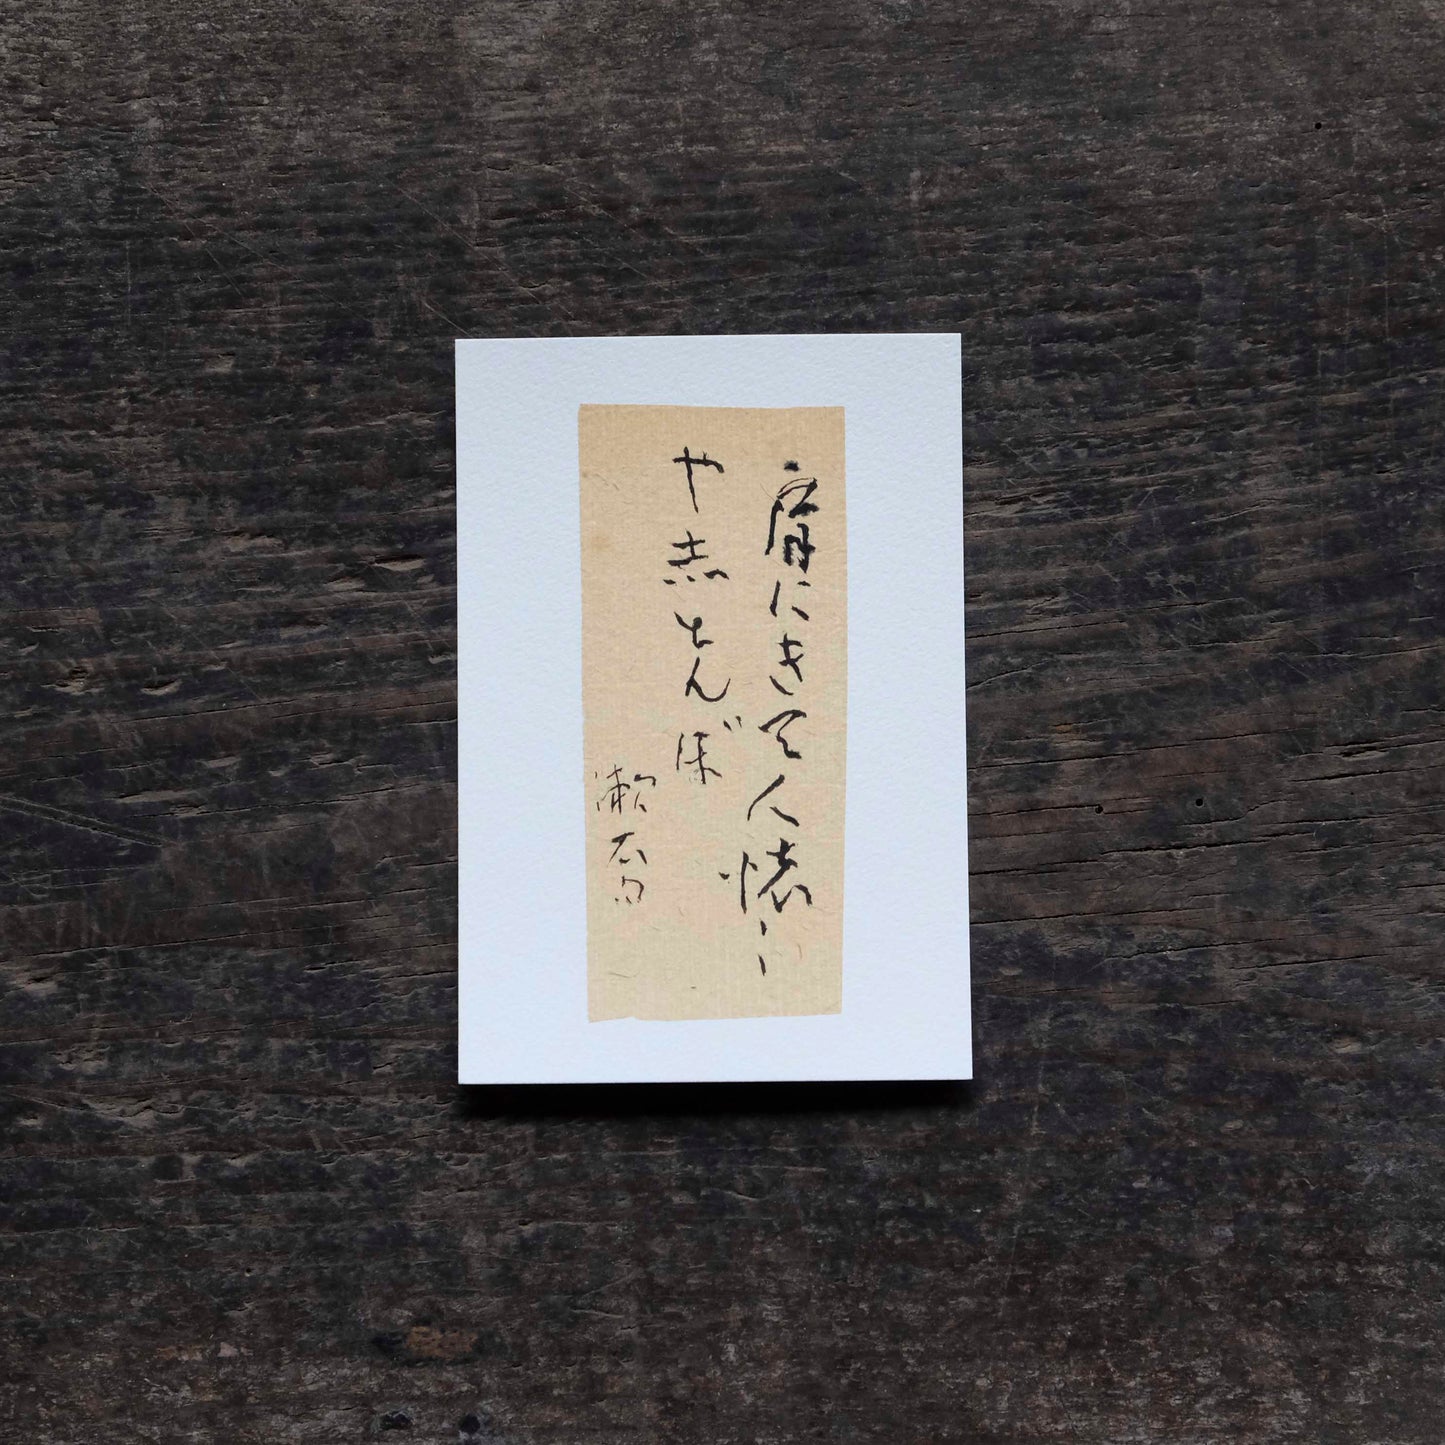 肩にきて人懐かし
や赤とんぼ
漱石